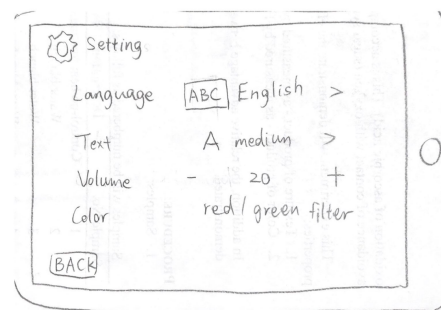 Setting
Language ABC English >
Text A mediun >
Volume - 20 +
Color red/green filter
BACK